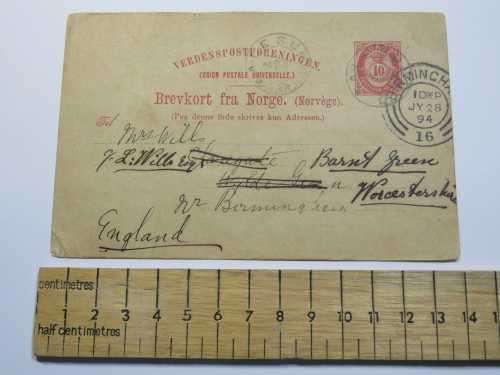 VERDENSPOSTFORENINGEN.
(UNION POSTALE UNIVERSELLE.)
Brevkort fra Norge. (Norvège.)
(Paa denne Side skrives kun Adressen.)
10
BIRMINGHA
JY 28
94
16
Til
Mrs Wills
J. L. Wills Esq
Barnt Green
Wylde Green
Worcestershire
nr Bermingham
England
centimetres
1 2 3 4 5 6 7 8 9 10 11 12 13 14 15
half centimetres